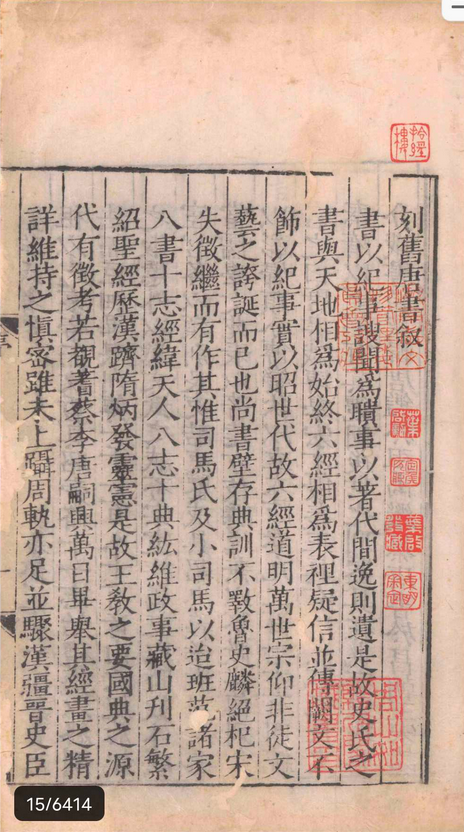 刻舊唐書叙
書以紀事謏聞爲聵事以著代間逸則遺是故史氏之
書與天地相爲始終六經相爲表裡疑信並傳闕文不
飾以紀事實以昭世代故六經道明萬世宗仰非徒文
藝之誇誕而已也尚書壁存典訓不斁魯史麟絕杞宋
失徵繼而有作其惟司馬氏及小司馬以迨班范諸家
八書十志經緯天人八志十典紘維政事藏山刋石繁
紹聖經歷漢躋隋炳發靈憲是故王敎之要國典之源
代有徵考若觀蓍蔡李唐嗣興萬目畢舉其經畫之精
詳維持之愼宻雖未上躡周軌亦足並驟漢疆晉史臣
15/6414